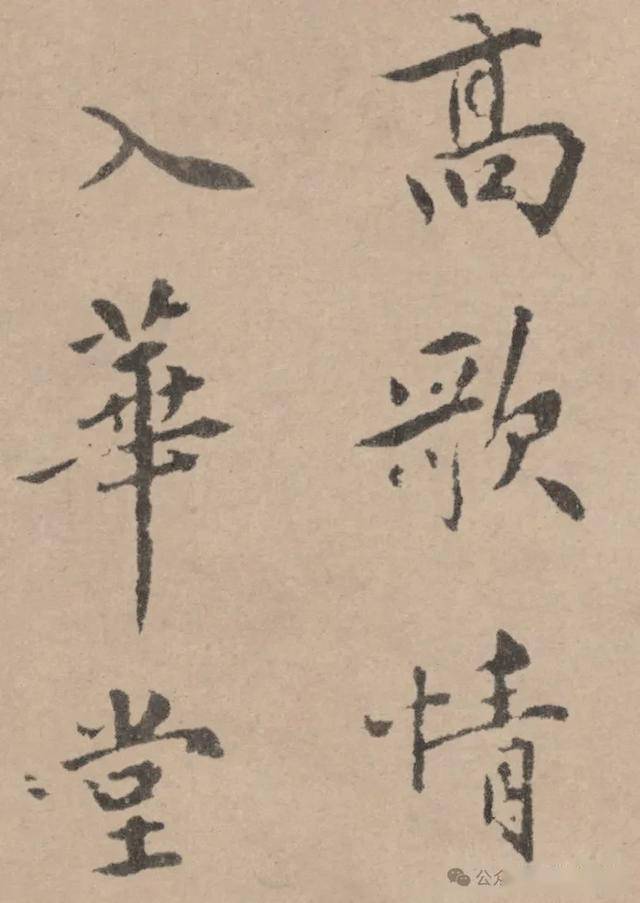 高歌情
入華堂
公众